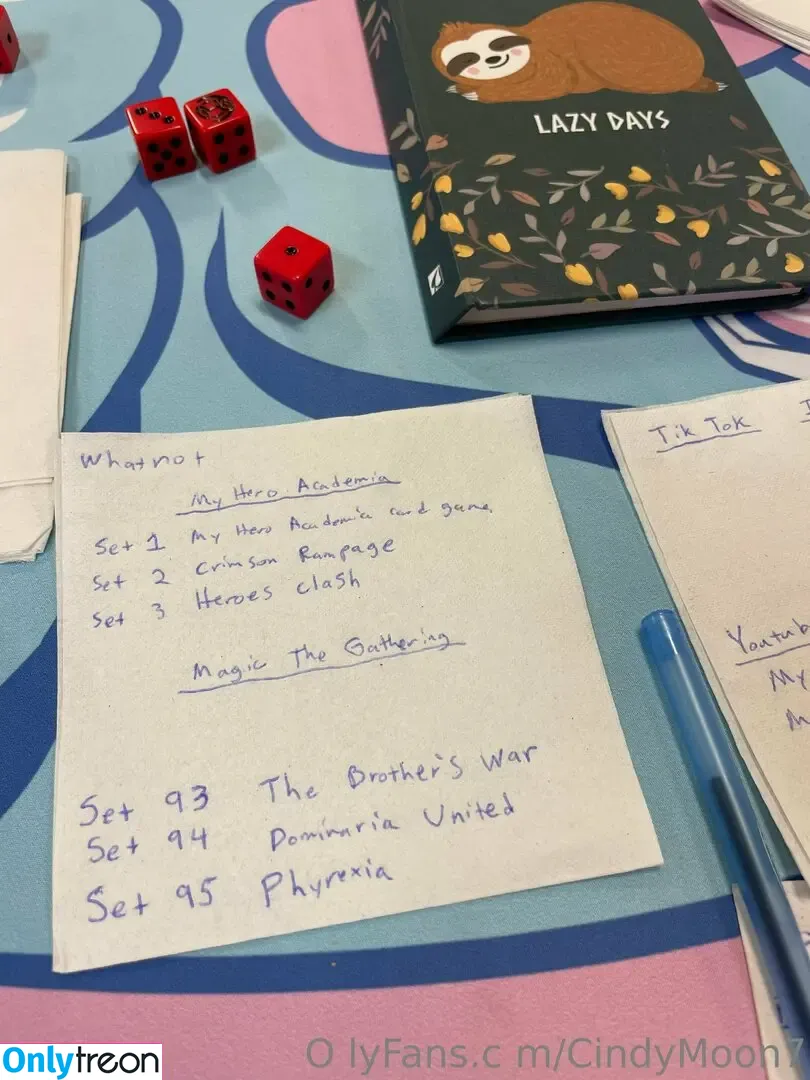 LAZY DAYS
Whatnot
My Hero Academia
Set 1 My Hero Academia card game
Set 2 Crimson Rampage
Set 3 Heroes clash
Magic The Gathering
Set 93 The Brother's War
Set 94 Dominaria United
Set 95 Phyrexia
Tik Tok
Youtub
My
M
Onlytreon
O lyFans.c m/CindyMoon7